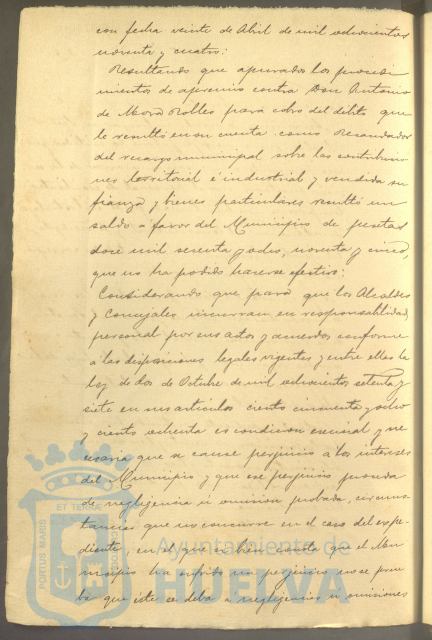 con fecha veinte de Abril de mil ochocientos
noventa y cuatro:
Resultando que apurados los procedi
mientos de apremio contra Don Antonio
de Mora Robles para cobro del debito que
le resultó en su cuenta como Recaudador
del recargo municipal sobre las contribucio
nes territorial é industrial y vendida su
fianza y bienes particulares resultó un
saldo á favor del Municipio de pesetas
doce mil sesenta y ocho, noventa y cinco,
que no ha podido hacerse efectivo:
Considerando que para que los Alcaldes
y Concejales incurran en responsabilidad
personal por sus actos y acuerdos conforme
á las disposiciones legales vigentes y entre ellas la
ley de dos de Octubre de mil ochocientos setenta y
siete en sus articulos ciento cincuenta y ocho
y ciento ochenta es condicion esencial y ne
cesaria que se cause perjuicio á los intereses
del Municipio y que ese perjuicio proceda
de negligencia ú omision probada, circuns
tancias que no concurre en el caso del expe
diente, en el que si bien consta que el Mu
nicipio ha sufrido un perjuicio no se prue
ba que este se deba á negligencias ú omisiones
PORTUS MARIS ET TERRÆ CUSTODIA
Ayuntamiento de
HUELVA